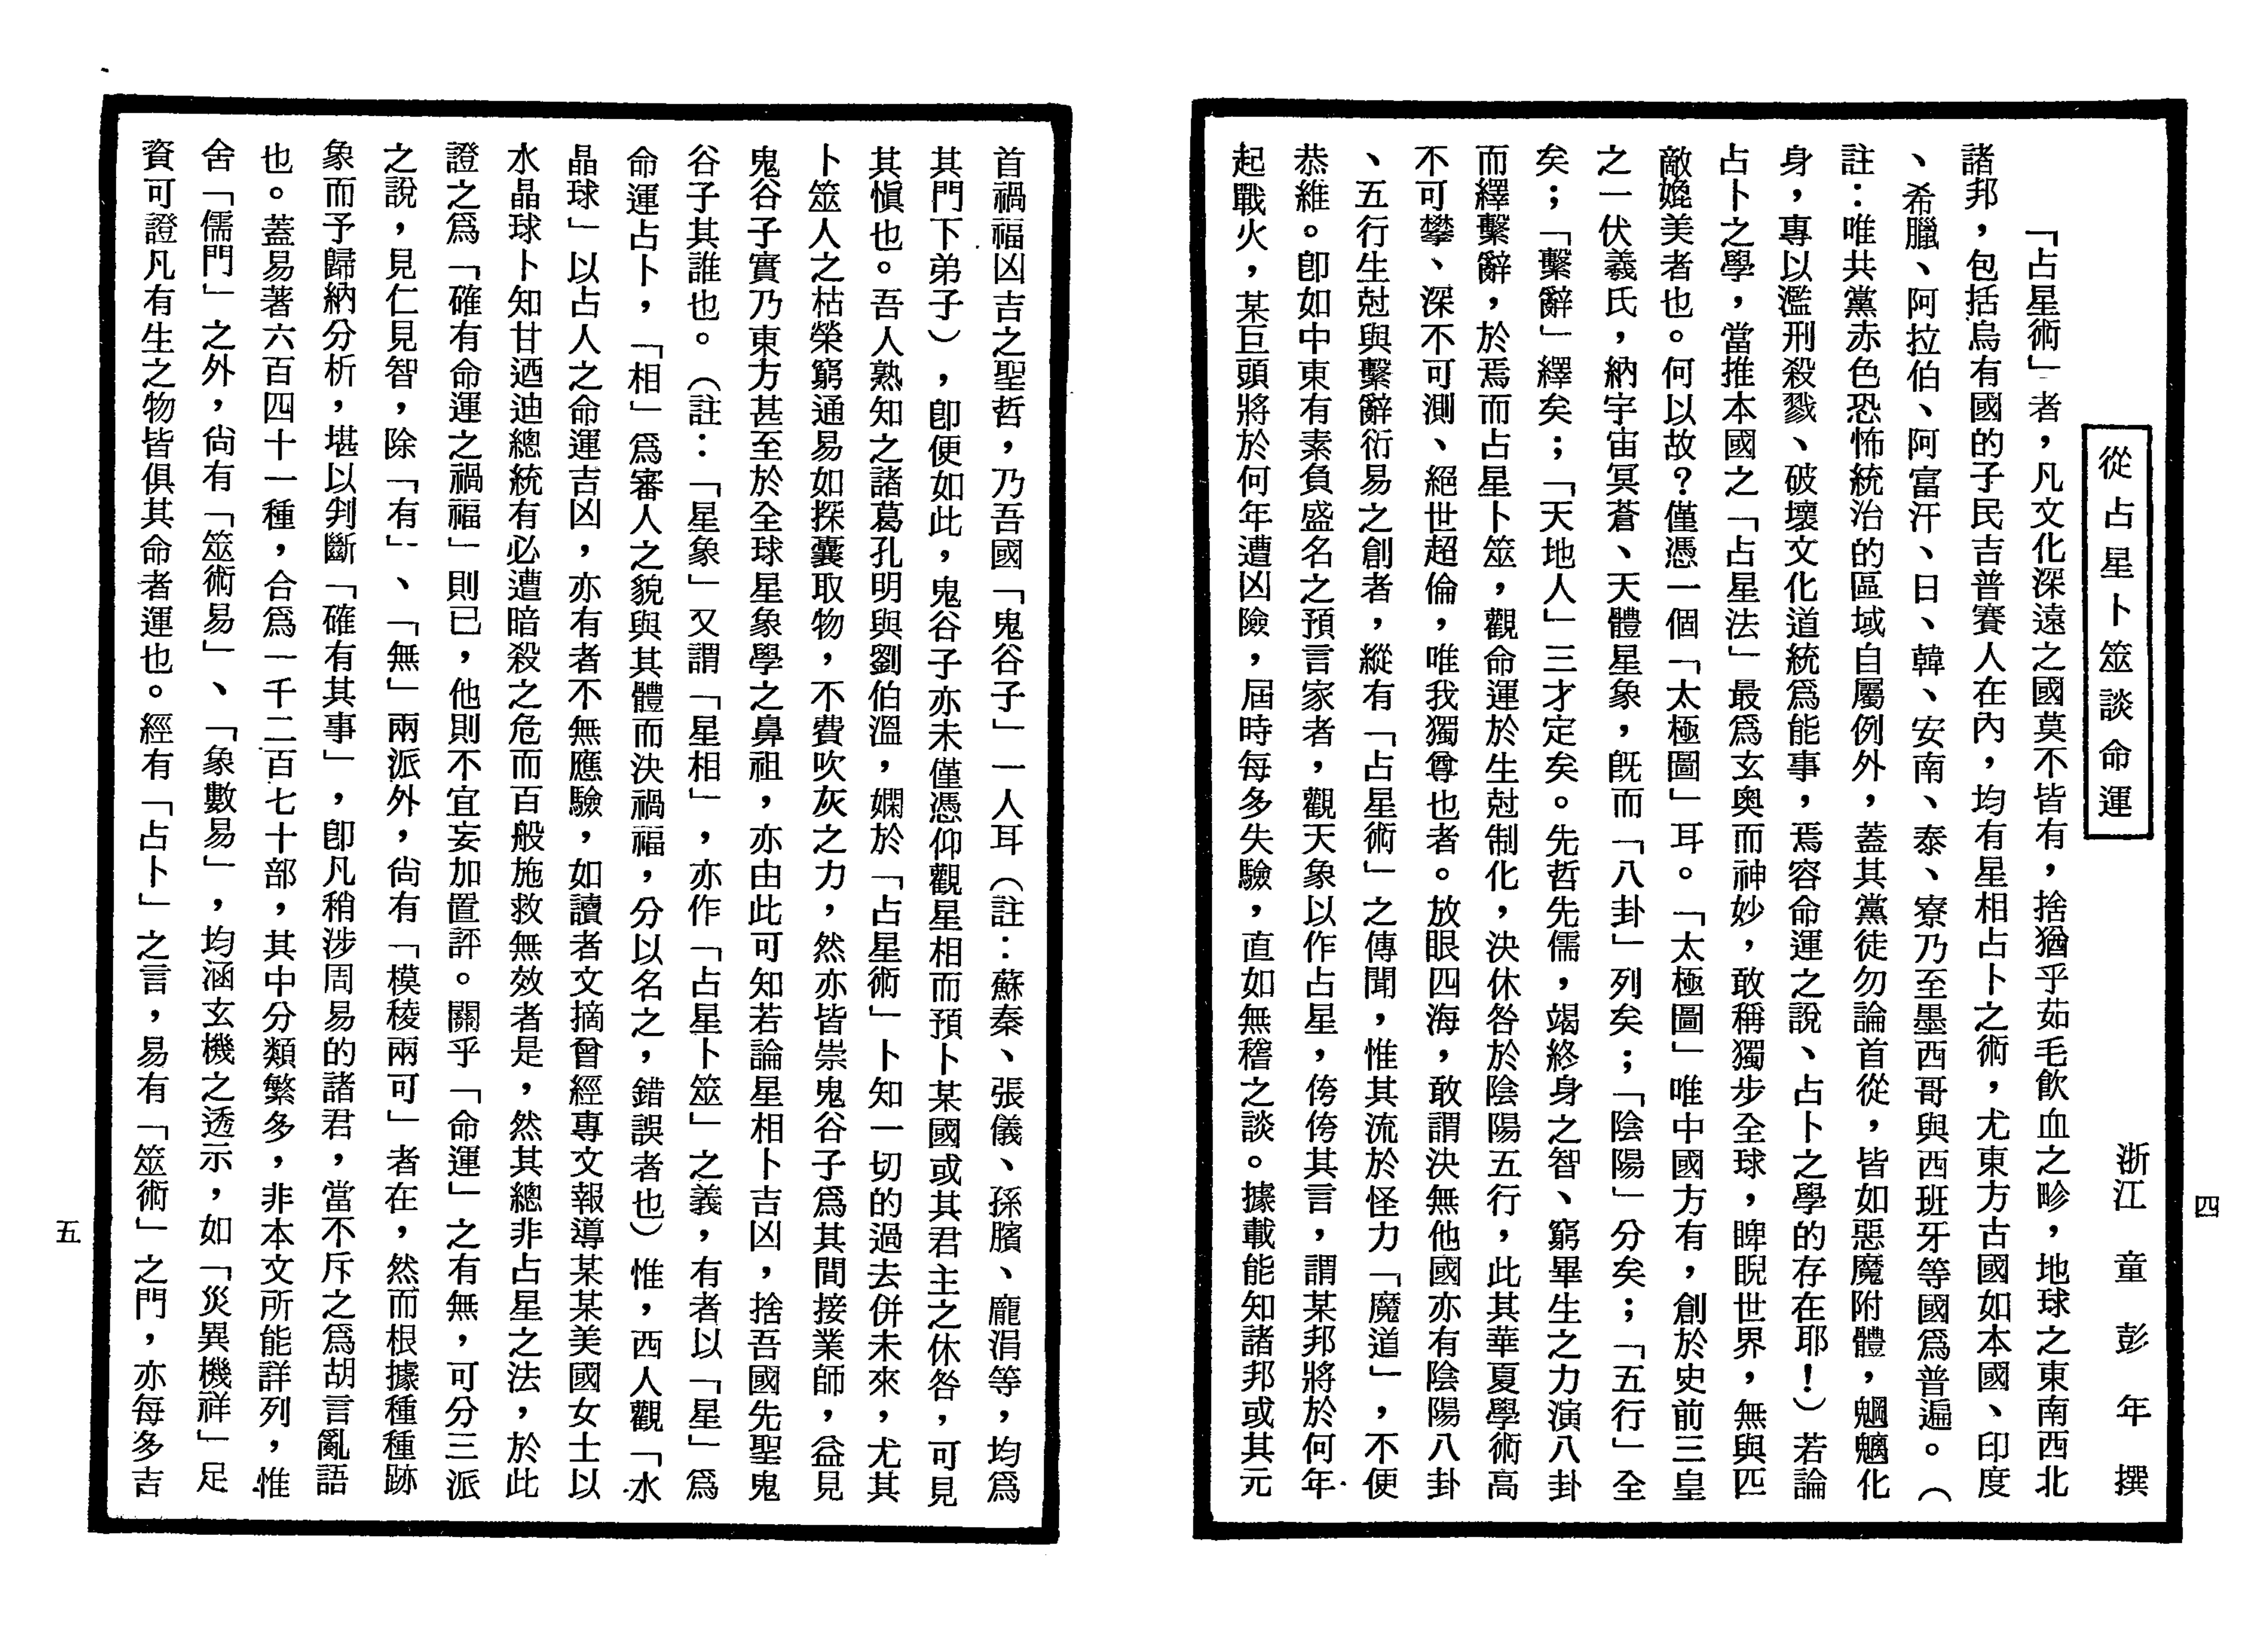 四
從占星卜筮談命運
浙江 童彭年撰
「占星術」者，凡文化深遠之國莫不皆有，捨猶乎茹毛飲血之畛，地球之東南西北
諸邦，包括烏有國的子民吉普賽人在內，均有星相占卜之術，尤東方古國如本國、印度
、希臘、阿拉伯、阿富汗、日、韓、安南、泰、寮乃至墨西哥與西班牙等國爲普遍。（
註：唯共黨赤色恐怖統治的區域自屬例外，蓋其黨徒勿論首從，皆如惡魔附體，魍魎化
身，專以濫刑殺戮、破壞文化道統爲能事，焉容命運之說、占卜之學的存在耶！）若論
占卜之學，當推本國之「占星法」最爲玄奧而神妙，敢稱獨步全球，睥睨世界，無與匹
敵媲美者也。何以故？僅憑一個「太極圖」耳。「太極圖」唯中國方有，創於史前三皇
之一伏羲氏，納宇宙冥蒼、天體星象，旣而「八卦」列矣；「陰陽」分矣；「五行」全
矣；「繫辭」繹矣；「天地人」三才定矣。先哲先儒，竭終身之智、窮畢生之力演八卦
而繹繫辭，於焉而占星卜筮，觀命運於生尅制化，決休咎於陰陽五行，此其華夏學術高
不可攀、深不可測、絕世超倫，唯我獨尊也者。放眼四海，敢謂決無他國亦有陰陽八卦
、五行生尅與繫辭衍易之創者，縱有「占星術」之傳聞，惟其流於怪力「魔道」，不便
恭維。卽如中東有素負盛名之預言家者，觀天象以作占星，侉侉其言，謂某邦將於何年
起戰火，某巨頭將於何年遭凶險，屆時每多失驗，直如無稽之談。據載能知諸邦或其元
首禍福凶吉之聖哲，乃吾國「鬼谷子」一人耳（註：蘇秦、張儀、孫臏、龐涓等，均爲
其門下弟子），卽便如此，鬼谷子亦未僅憑仰觀星相而預卜某國或其君主之休咎，可見
其愼也。吾人熟知之諸葛孔明與劉伯溫，嫻於「占星術」卜知一切的過去併未來，尤其
卜筮人之枯榮窮通易如探囊取物，不費吹灰之力，然亦皆崇鬼谷子爲其間接業師，益見
鬼谷子實乃東方甚至於全球星象學之鼻祖，亦由此可知若論星相卜吉凶，捨吾國先聖鬼
谷子其誰也。（註：「星象」又謂「星相」，亦作「占星卜筮」之義，有者以「星」爲
命運占卜，「相」爲審人之貌與其體而決禍福，分以名之，錯誤者也）惟，西人觀「水
晶球」以占人之命運吉凶，亦有者不無應驗，如讀者文摘曾經專文報導某某美國女士以
水晶球卜知甘迺迪總統有必遭暗殺之危而百般施救無效者是，然其總非占星之法，於此
證之爲「確有命運之禍福」則已，他則不宜妄加置評。關乎「命運」之有無，可分三派
之說，見仁見智，除「有」、「無」兩派外，尙有「模稜兩可」者在，然而根據種種跡
象而予歸納分析，堪以判斷「確有其事」，卽凡稍涉周易的諸君，當不斥之爲胡言亂語
也。蓋易著六百四十一種，合爲一千二百七十部，其中分類繁多，非本文所能詳列，惟
舍「儒門」之外，尙有「筮術易」、「象數易」，均涵玄機之透示，如「災異機祥」足
資可證凡有生之物皆俱其命者運也。經有「占卜」之言，易有「筮術」之門，亦每多吉
五